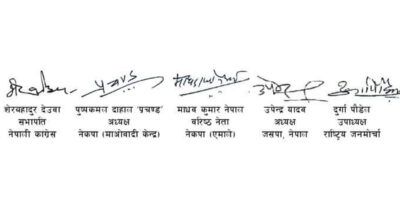 शेरबहादुर देउवा
सभापति
नेपाली कांग्रेस
पुष्पकमल दाहाल 'प्रचण्ड'
अध्यक्ष
नेकपा (माओवादी केन्द्र)
माधव कुमार नेपाल
वरिष्ठ नेता
नेकपा (एमाले)
उपेन्द्र यादव
अध्यक्ष
जसपा, नेपाल
दुर्गा पौडेल
उपाध्यक्ष
राष्ट्रिय जनमोर्चा